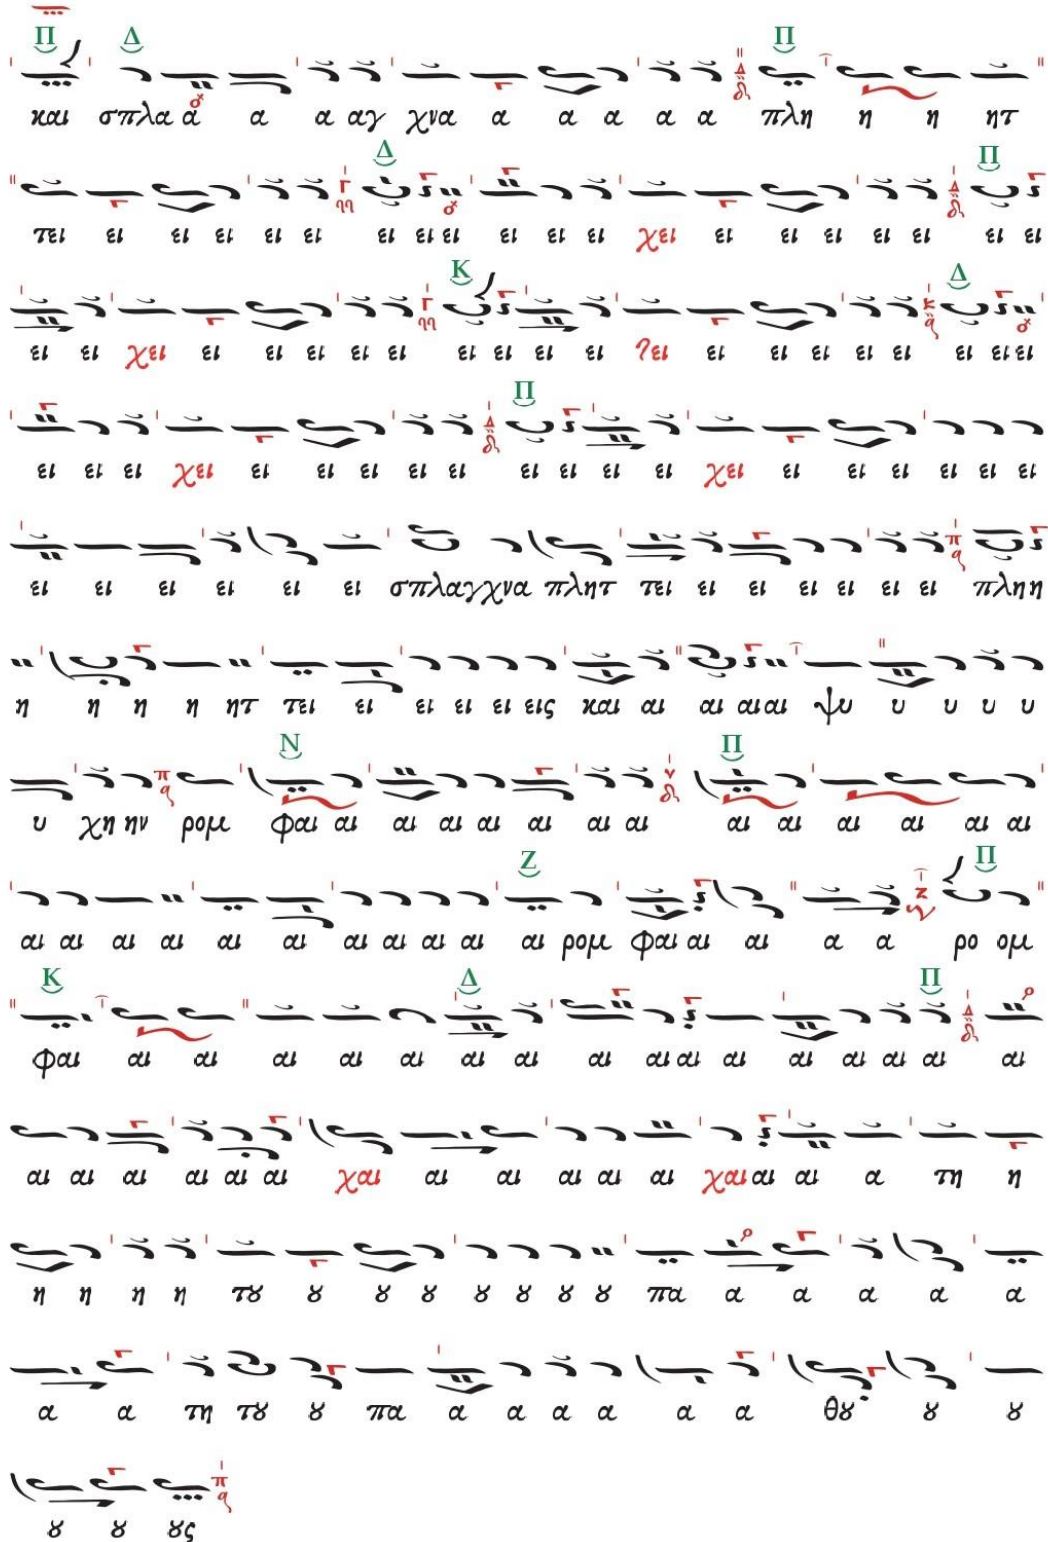 Π Δ Π
και σπλα α α α αγ χνα α α α α α πλη η η ητ
Δ Π
τει ει ει ει ει ει ει ει ει ει ει ει χει ει ει ει ει ει ει ει
Κ Δ
ει ει χει ει ει ει ει ει ει ει ει ει ʔει ει ει ει ει ει ει ει ει
Π
ει ει ει χει ει ει ει ει ει ει ει ει ει χει ει ει ει ει ει ει
ει ει ει ει ει ει σπλαγχνα πλητ τει ει ει ει ει ει ει πλη η
η η η η ητ τει ει ει ει ει εις και αι αι αι αι ψυ υ υ υ υ
Ν Π
υ χη ην ρομ φαι αι αι αι αι αι αι αι αι αι αι αι αι αι
Ζ Π
αι αι αι αι αι αι αι αι αι αι αι ρομ φαι αι αι α α ρο ομ
Κ Δ Π
φαι αι αι αι αι αι αι αι αι αι αι αι αι αι αι αι αι
αι αι αι αι αι αι χαι αι αι αι αι αι χαι αι αι α τη η
η η η η τȣ ȣ ȣ ȣ ȣ ȣ ȣ ȣ πα α α α α α
α α τη τȣ ȣ πα α α α α α α θȣ ȣ ȣ
ȣ ȣ ȣς